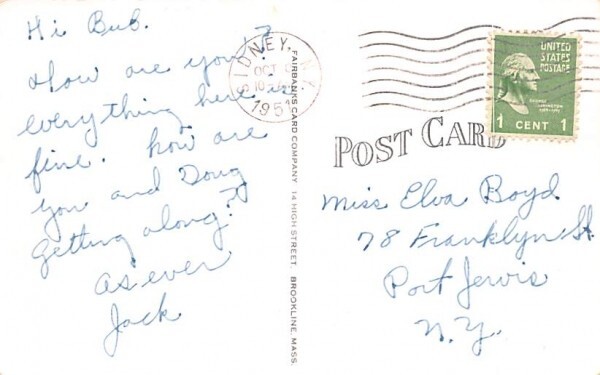 Hi Bub.
How are you?
everything here is
fine. how are
you and Doug
getting along?
as ever
Jack
SIDNEY, N.Y.
OCT
10
195
FAIRBANKS CARD COMPANY. 14 HIGH STREET. BROOKLINE, MASS.
UNITED
STATES
POSTAGE
GEORGE
WASHINGTON
1789-1797
1 CENT 1
POST CARD
Miss Elva Boyd
78 Franklyn St.
Port Jervis
N.Y.